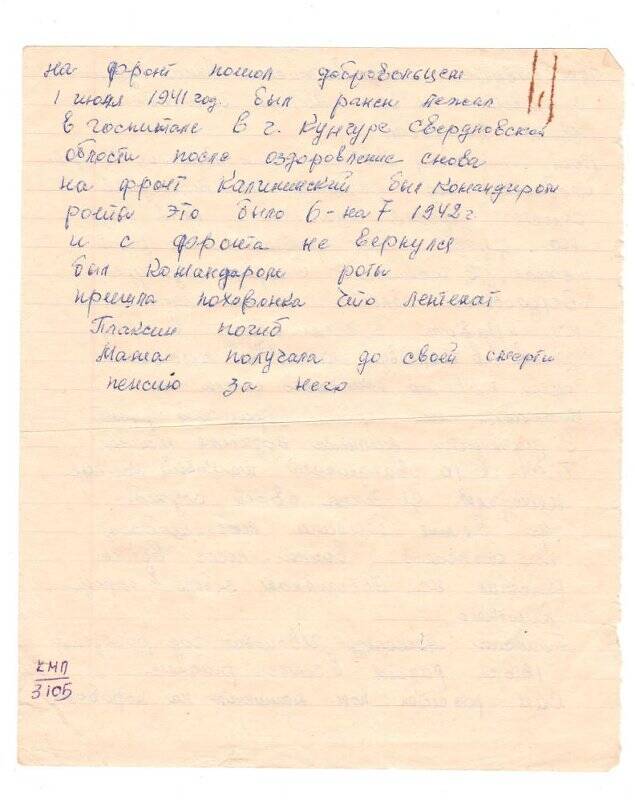 на фронт пошол добровольцем
1 июня 1941 год. был ранен лежал
в госпитале в г. Кунгуре Свердловской
облости после оздоровление снова
на фронт Калининский был командиром
роты это было 6-на 7 1942 г
и с фронта не вернулся
был командаром роты
пришла похоронка что лентекат
Плаксин погиб
Мама получала до своей смерти
пенсию за него
КМП
3105